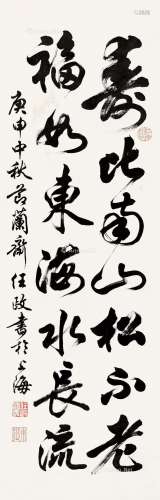 壽比南山松不老
福如東海水長流
庚申中秋茆蘭齋任政書於上海